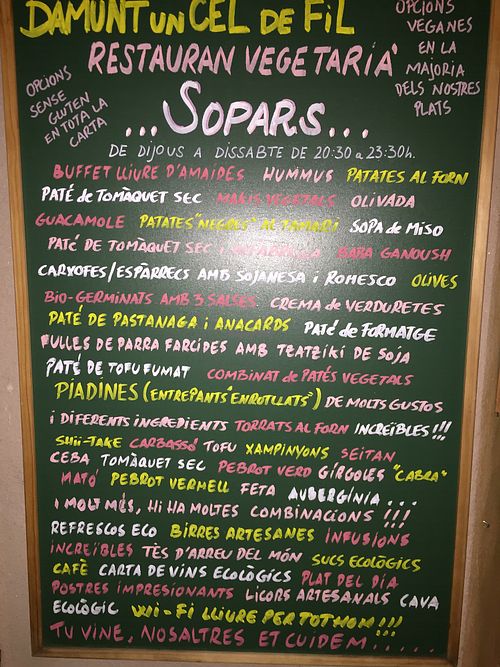 DAMUNT UN CEL DE FIL
RESTAURAN VEGETARIÀ
OPCIONS
VEGANES
EN LA
MAJORIA
DELS NOSTRES
PLATS
OPCIONS
SENSE
GLUTEN
EN TOTA LA
CARTA
...SOPARS...
DE DIJOUS A DISSABTE DE 20:30 a 23:30h.
BUFFET LLIURE D'AMAIDES HUMMUS PATATES AL FORN
PATÉ de TOMÀQUET SEC MAKIS VEGETALS OLIVADA
GUACAMOLE PATATES "NEGRES" AL TAMARI SOPA de MISO
PATÉ DE TOMÀQUET SEC i BABA GANOUSH
CARXOFES/ESPÀRRECS AMB SOJANESA i ROMESCO OLIVES
BIO-GERMINATS AMB 3 SALSES CREMA de VERDURETES
PATÉ DE PASTANAGA i ANACARDS PATÉ de FORMATGE
FULLES DE PARRA FARCIDES AMB TZATZIKI DE SOJA
PATÉ DE TOFU FUMAT COMBINAT de PATÉS VEGETALS
PIADINES (ENTREPANTS "ENROTLLATS") DE MOLTS GUSTOS
i DIFERENTS INGREDIENTS TORRATS AL FORN INCREÏBLES!!!
SHII-TAKE CARBASSÓ TOFU XAMPINYONS SEITAN
CEBA TOMÀQUET SEC PEBROT VERD GÍRGOLES "CABRA"
MATÓ PEBROT VERMELL FETA AUBERGÍNIA...
i MOLT MÉS, HI HA MOLTES COMBINACIONS !!!
REFRESCOS ECO BIRRES ARTESANES INFUSIONS
INCREÏBLES TÈS D'ARREU DEL MÓN SUCS ECOLÒGICS
CAFÈ CARTA DE VINS ECOLÒGICS PLAT DEL DIA
POSTRES IMPRESIONANTS LICORS ARTESANALS CAVA
ECOLÒGIC WI-FI LLIURE PER TOTHOM!!!
TU VINE, NOSALTRES ET CUIDEM.....